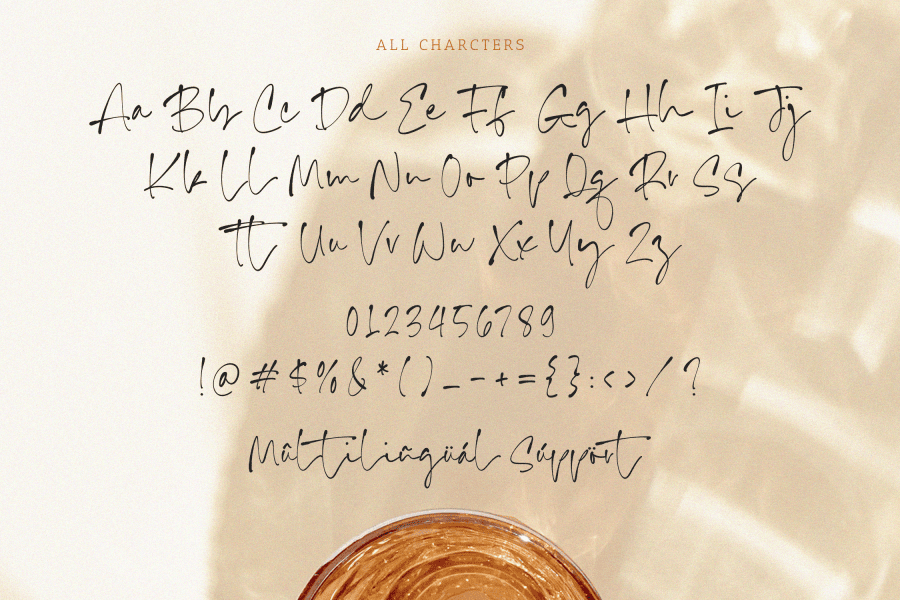 ALL CHARCTERS
Aa Bb Cc Dd Ee Ff Gg Hh Ii Jj
Kk Ll Mm Nn Oo Pp Qq Rr Ss
Tt Uu Vv Ww Xx Yy Zz
0123456789
!@#$%&*()_-+={}:<>/?
Mûltiliñgüál Súppört